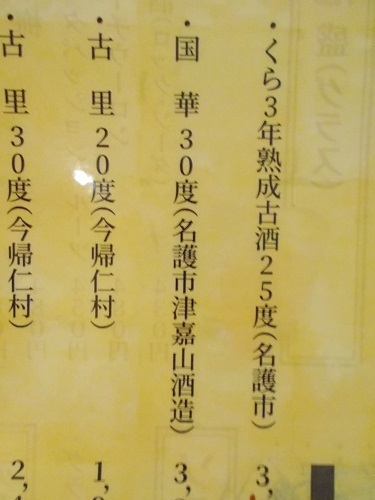 ・くら3年熟成古酒25度(名護市) 3,
・国華30度(名護市津嘉山酒造) 3,
・古里20度(今帰仁村) 1,
・古里30度(今帰仁村) 2,